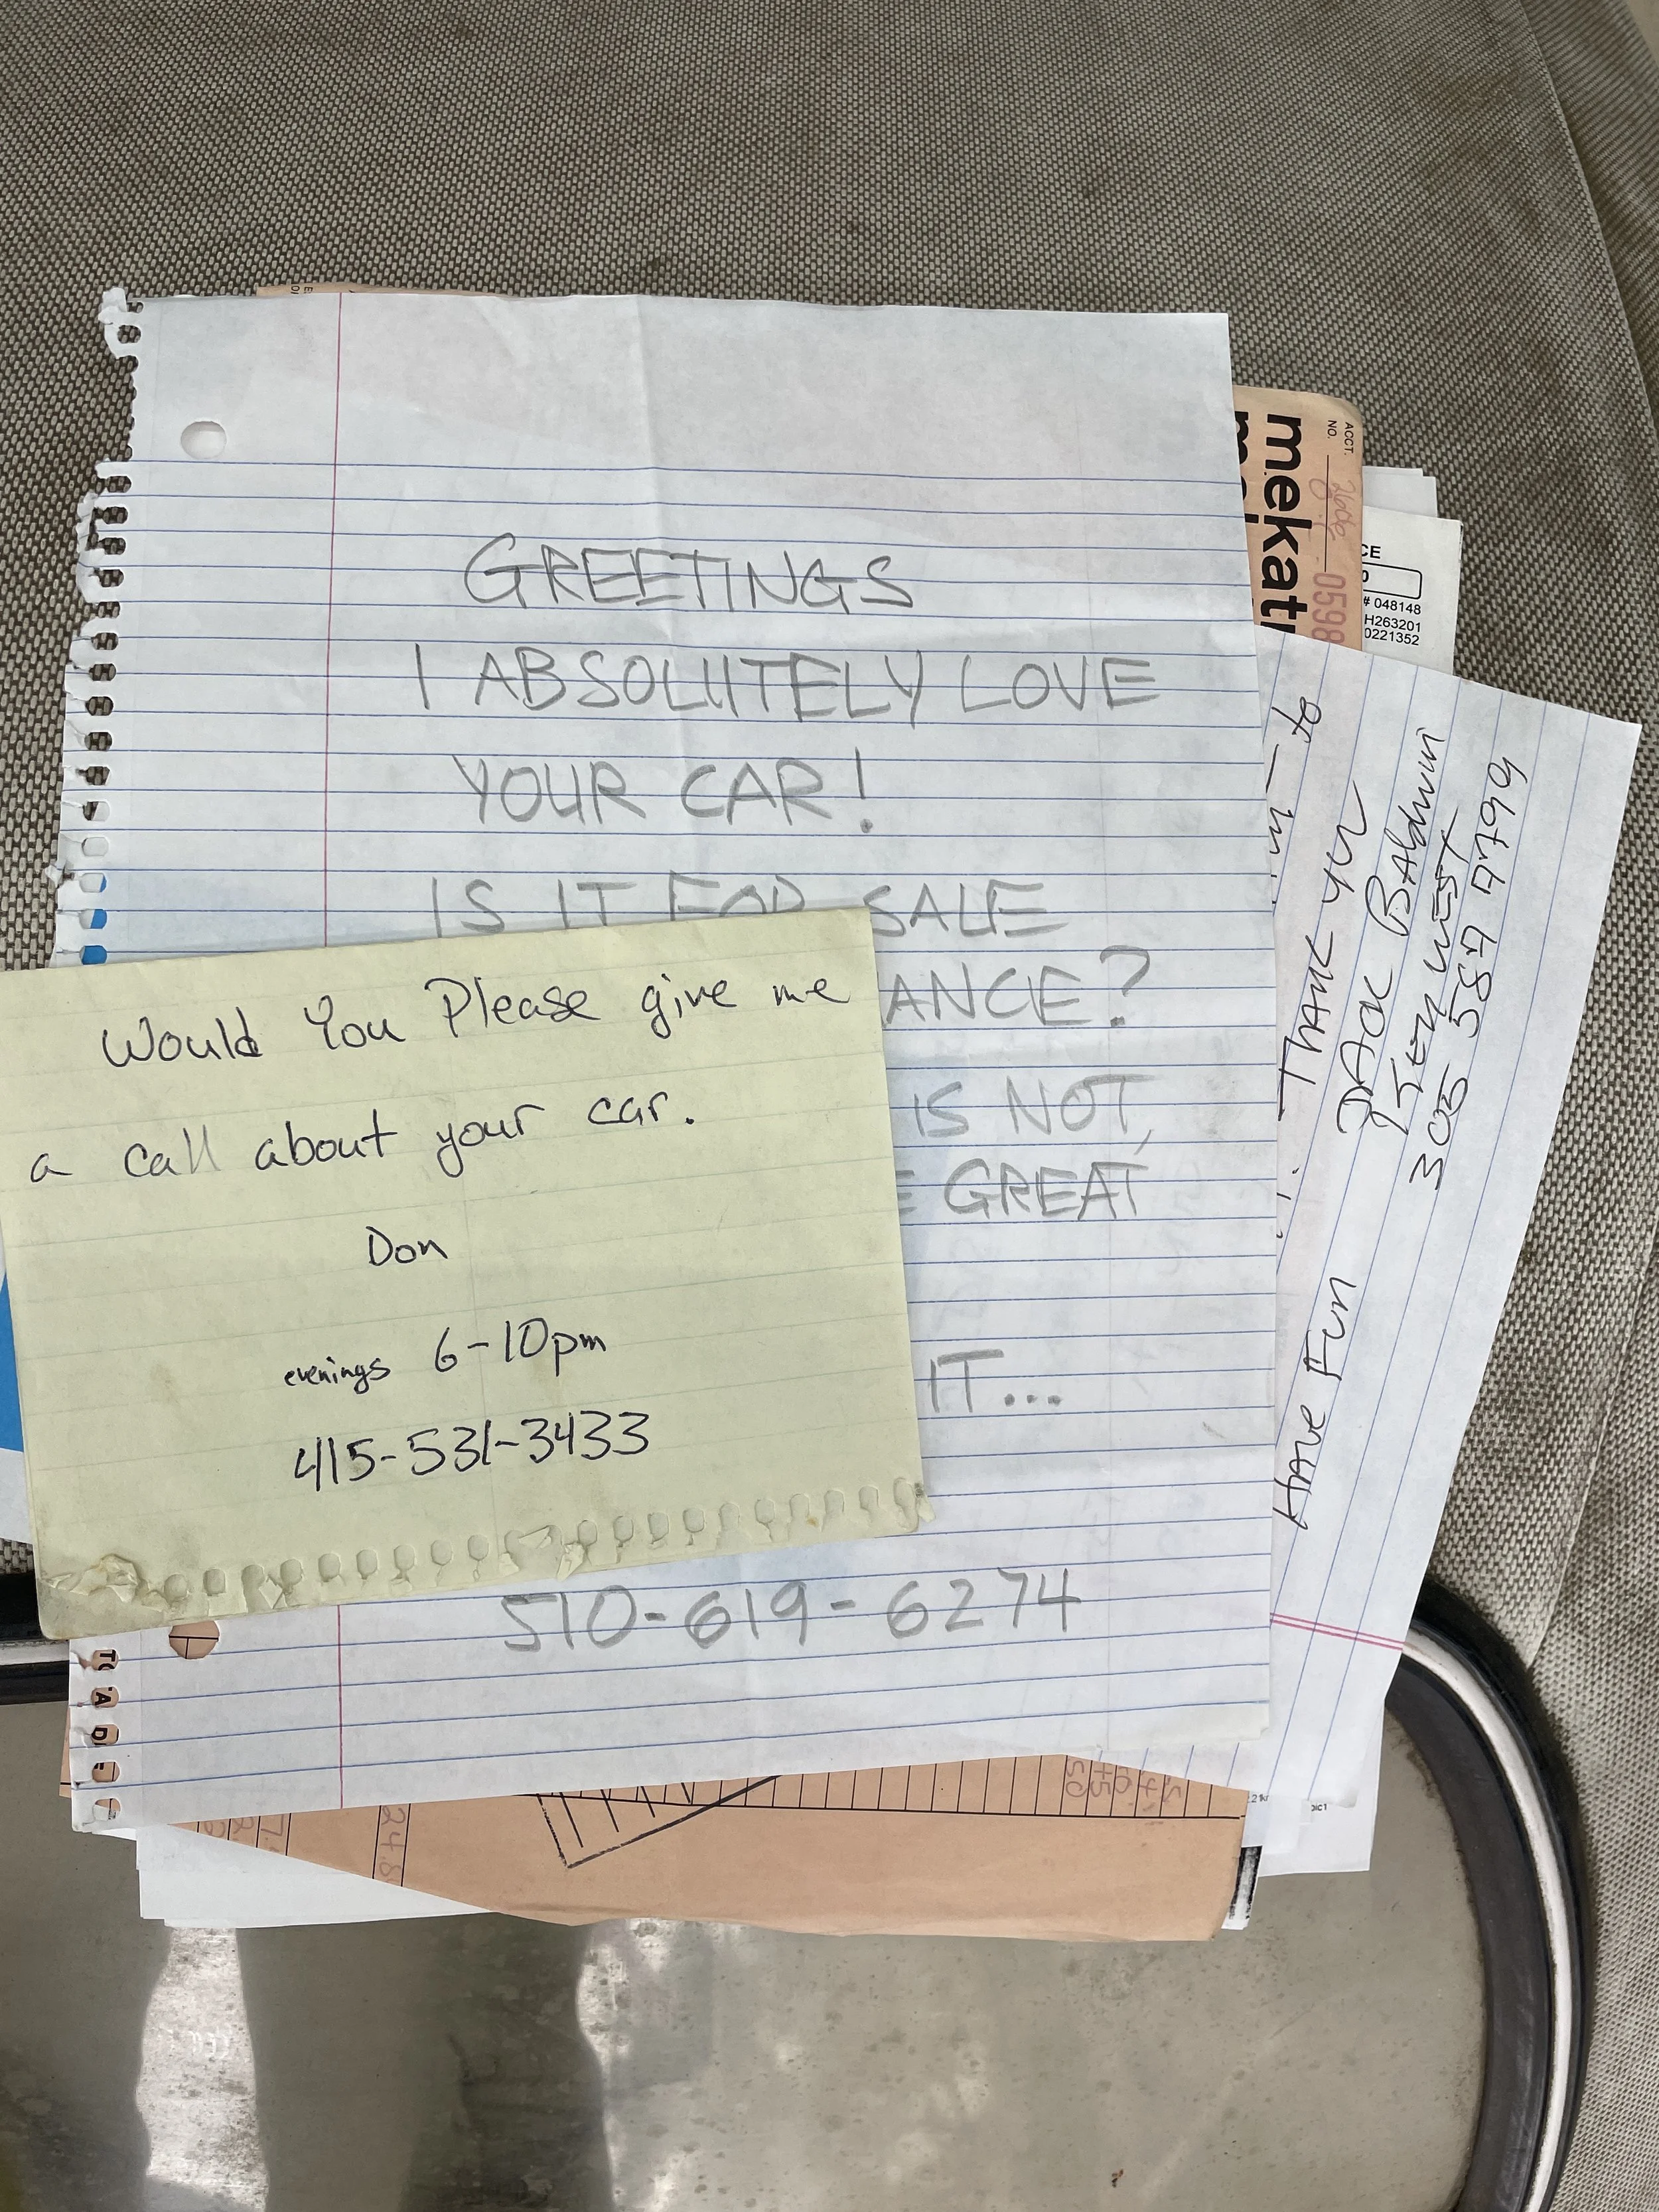 GREETINGS
I ABSOLUTELY LOVE
YOUR CAR!
IS IT FOR SALE
ANCE?
IS NOT,
E GREAT
IT...
510-619-6274
Would You Please give me
a call about your car.
Don
evenings 6-10pm
415-531-3433
to
THANK YOU
JACK BAldwin
KEY WEST
305 587 7799
HAVE FUN
mekat
ACCT.
NO.
0598
CE
# 048148
H263201
0221352
TO
A
D
24.8